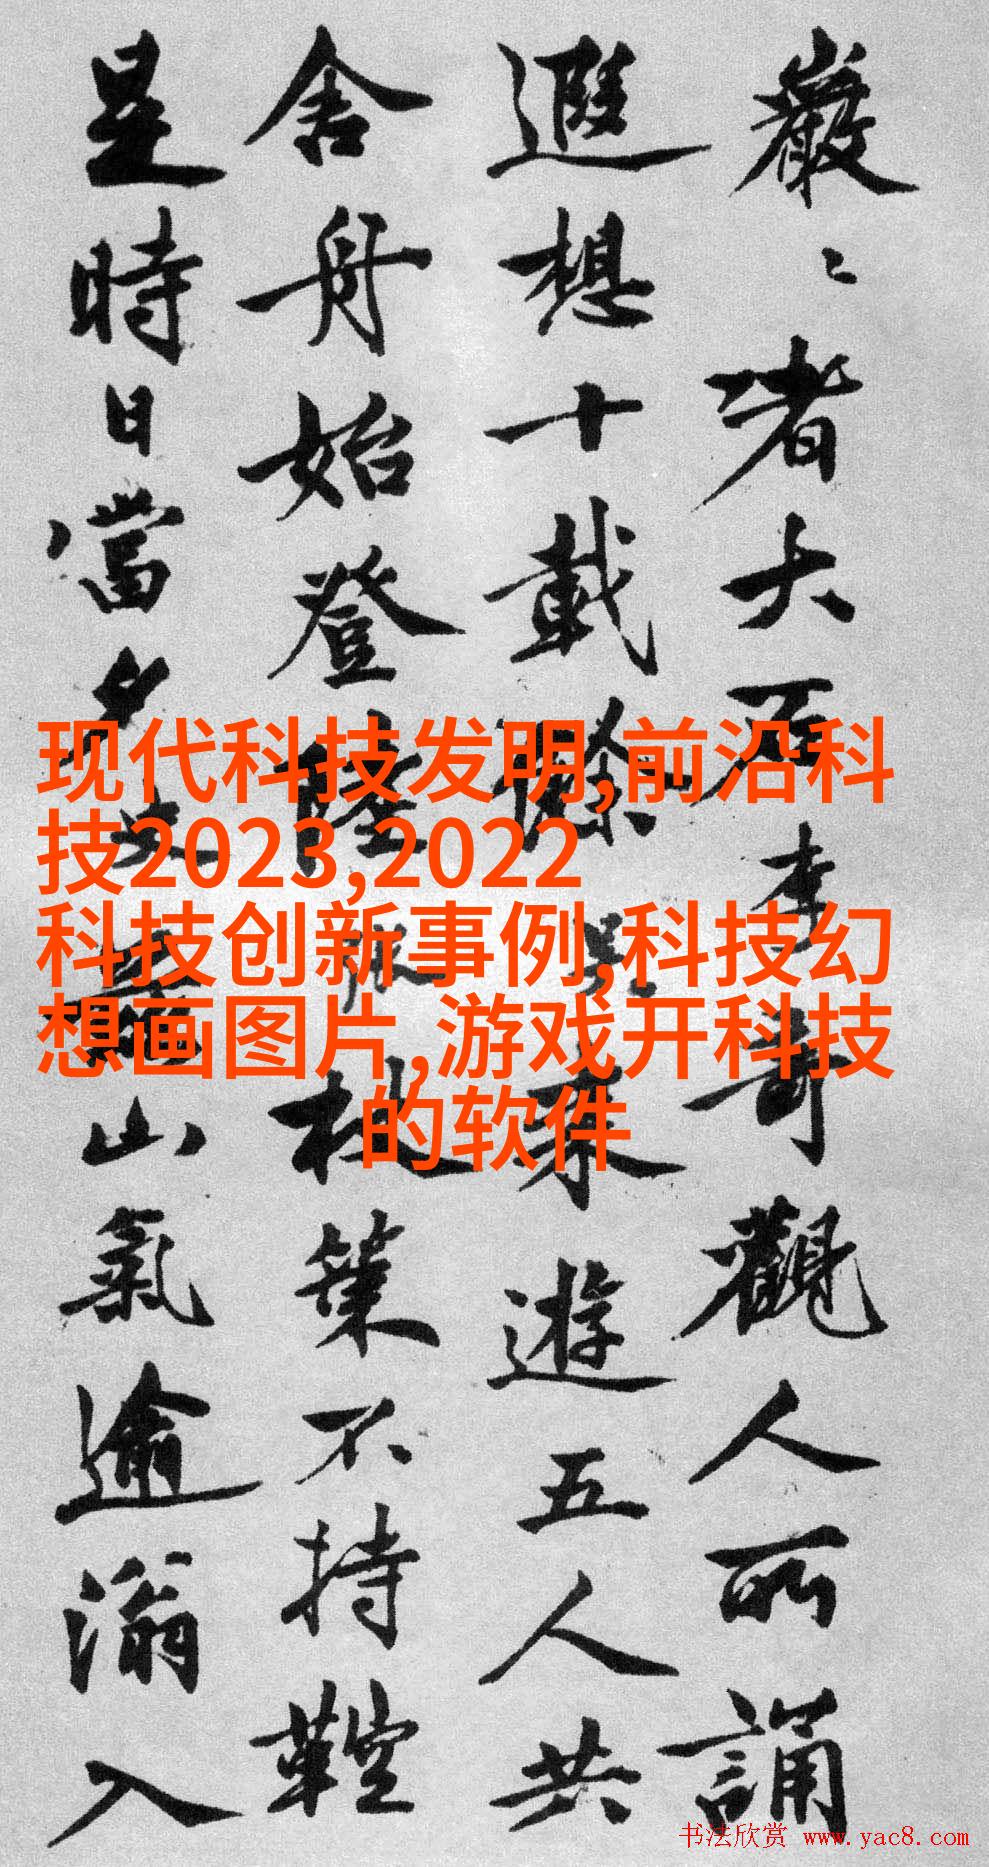 巖〻者大石本奇觀人所誦
遐想十載餘來遊五人共
舍舟始登陸杖策不持鞚
是時日當夕山氣逾滃入
现代科技发明,前沿科
技2023,2022
科技创新事例,科技幻
想画图片,游戏开科技
的软件
书法欣赏 www.yac8.com